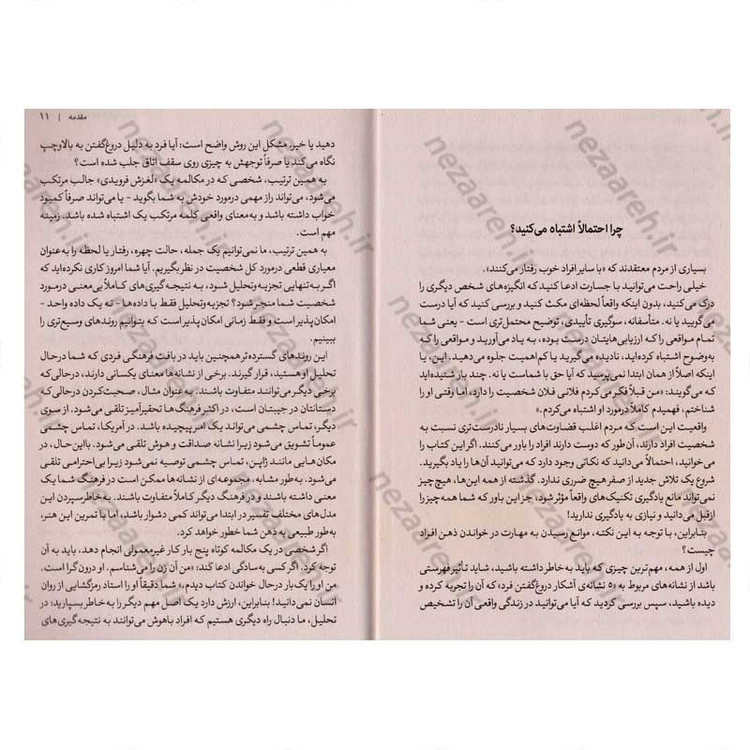 چرا احتمالاً اشتباه می‌کنید؟
بسیاری از مردم معتقدند که «با سایر افراد خوب رفتار می‌کنند».
خیلی راحت می‌توانید با جسارت ادعا کنید که انگیزه‌های شخص دیگری را
درک می‌کنید، بدون اینکه واقعاً لحظه‌ای مکث کنید و بررسی کنید که آیا درست
می‌گویید یا نه. متأسفانه، سوگیری تأییدی، توضیح محتمل‌تری است - یعنی شما
تمام مواقعی را که ارزیابی‌هایتان درست بوده، به یاد می‌آورید و مواقعی را که
به‌وضوح اشتباه کرده‌اید، نادیده می‌گیرید یا کم‌اهمیت جلوه می‌دهید. این، یا
اینکه اصلاً از همان ابتدا نمی‌پرسید که آیا حق با شماست یا نه. چند بار شنیده‌اید
که می‌گویند: «من قبلاً فکر می‌کردم فلانی فلان شخصیت را دارد، اما وقتی او را
شناختم، فهمیدم کاملاً درمورد او اشتباه می‌کردم.»
واقعیت این است که مردم اغلب قضاوت‌های بسیار نادرست‌تری نسبت به
شخصیت افراد دارند، آن‌طور که دوست دارند افراد را باور می‌کنند. اگر این کتاب را
می‌خوانید، احتمالاً می‌دانید که نکاتی وجود دارد که می‌توانید آن‌ها را یاد بگیرید.
شروع یک تلاش جدید از صفر هیچ ضرری ندارد. گذشته از همه این‌ها، هیچ‌چیز
نمی‌تواند مانع یادگیری تکنیک‌های واقعاً مؤثر شود، جز این باور که شما همه‌چیز را
از قبل می‌دانید و نیازی به یادگیری ندارید!
بنابراین، با توجه به این نکته، موانع رسیدن به مهارت در خواندن ذهن افراد
چیست؟
اول از همه، مهم‌ترین چیزی که باید به خاطر داشته باشید، شاید تأثیر فهرستی
باشد از نشانه‌های مربوط به «۵ نشانه‌ی آشکار دروغ‌گفتن فرد» که آن را تجربه کرده و
دیده باشید، سپس بررسی کردید که آیا می‌توانید در زندگی واقعی آن را تشخیص
مقدمه | ۱۱
دهید یا خیر. مشکل این روش واضح است: آیا فرد به دلیل دروغ‌گفتن به بالا و چپ
نگاه می‌کند یا صرفاً توجهش به چیزی روی سقف اتاق جلب شده است؟
به همین ترتیب، شخصی که در مکالمه یک «لغزش فرویدی» جالب مرتکب
می‌شود، می‌تواند راز مهمی درمورد خودش به شما بگوید - یا می‌تواند صرفاً کمبود
خواب داشته باشد و به‌معنای واقعی کلمه مرتکب یک اشتباه شده باشد. زمینه
مهم است.
به همین ترتیب، ما نمی‌توانیم یک جمله، حالت چهره، رفتار یا لحظه را به‌عنوان
معیاری قطعی درمورد کل شخصیت در نظر بگیریم. آیا شما امروز کاری نکرده‌اید که
اگر به تنهایی تجزیه‌وتحلیل شود، به نتیجه‌گیری‌های کاملاً بی‌معنی درمورد
شخصیت شما منجر شود؟ تجزیه‌وتحلیل فقط با داده‌ها - نه یک داده واحد -
امکان‌پذیر است و فقط زمانی امکان‌پذیر است که بتوانیم روندهای وسیع‌تری را
ببینیم.
این روندهای گسترده‌تر همچنین باید در بافت فرهنگی فردی که شما درحال
تحلیل او هستید، قرار گیرند. برخی از نشانه‌ها معنای یکسانی دارند، درحالی‌که
برخی دیگر می‌توانند متفاوت باشند. به‌عنوان مثال، صحبت‌کردن درحالی‌که
دستانتان در جیبتان است، در اکثر فرهنگ‌ها تحقیرآمیز تلقی می‌شود. از سوی
دیگر، تماس چشمی می‌تواند یک امر پیچیده باشد. در آمریکا، تماس چشمی
عموماً تشویق می‌شود زیرا نشانه صداقت و هوش تلقی می‌شود. بااین‌حال، در
مکان‌هایی مانند ژاپن، تماس چشمی توصیه نمی‌شود زیرا بی‌احترامی تلقی
می‌شود. به‌طور مشابه، مجموعه‌ای از نشانه‌ها ممکن است در فرهنگ شما یک
معنی داشته باشند و در فرهنگ دیگر کاملاً متفاوت باشند. به خاطر سپردن این
مدل‌های مختلف تفسیر در ابتدا می‌تواند کمی دشوار باشد، اما با تمرین این هنر،
به‌طور طبیعی به ذهن شما خطور خواهد کرد.
اگر شخصی در یک مکالمه کوتاه پنج بار کار غیرمعمولی انجام دهد، باید به آن
توجه کرد. اگر کسی به‌سادگی ادعا کند: «من آن زن را می‌شناسم. او درون‌گرا است.
من او را یک بار درحال خواندن کتاب دیدم.» شما دقیقاً او را استاد رمزگشایی از روان
انسان نمی‌دانید! بنابراین، ارزش دارد یک اصل مهم دیگر را به خاطر بسپارید: در
تحلیل، ما دنبال راه دیگری هستیم که افراد باهوش می‌توانند به نتیجه‌گیری‌های